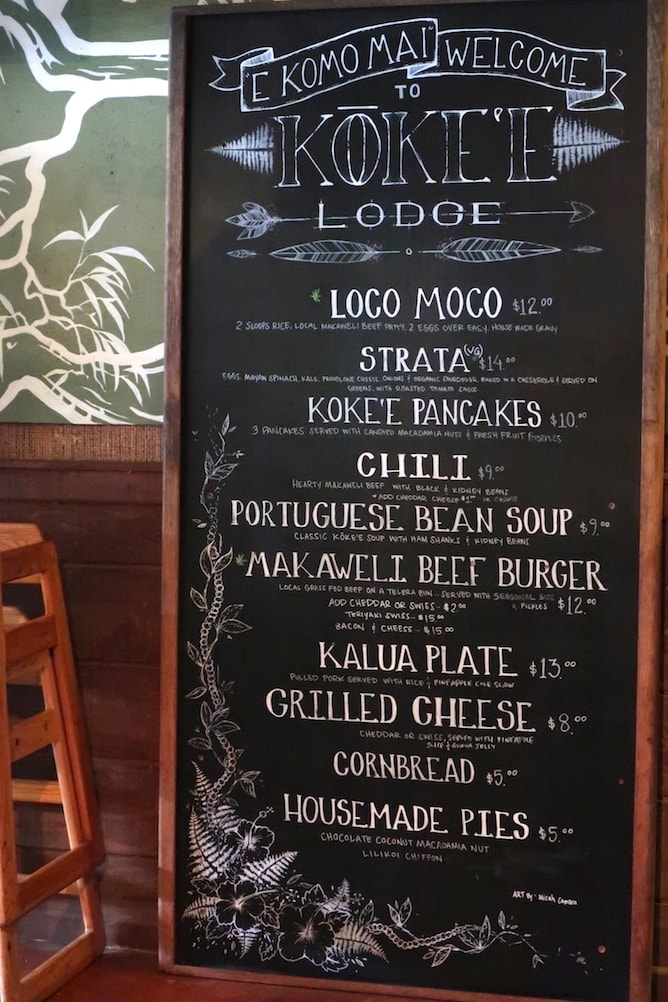 E KOMO MAI WELCOME
TO
KŌKE'E
LODGE
LOCO MOCO $12.00
2 SCOOPS RICE, LOCAL MAKAWELI BEEF PATTY, 2 EGGS OVER EASY, HOUSE MADE GRAVY
STRATA (VG) $14.00
EGGS, MAYAN SPINACH, KALE, PROVOLONE CHEESE, ONIONS & ORGANIC SOURDOUGH, BAKED IN A CASSEROLE & SERVED ON
GREENS, WITH ROASTED TOMATO SAUCE
KOKE'E PANCAKES $10.00
3 PANCAKES SERVED WITH CANDIED MACADAMIA NUTS & FRESH FRUIT
CHILI $9.00
HEARTY MAKAWELI BEEF WITH BLACK & KIDNEY BEANS
ADD CHEDDAR CHEESE
PORTUGUESE BEAN SOUP $9.00
CLASSIC KŌKE'E SOUP WITH HAM SHANKS & KIDNEY BEANS
MAKAWELI BEEF BURGER
LOCAL GRASS FED BEEF ON A TELERA BUN - SERVED WITH SEASONAL SIDE
& PICKLES $12.00
ADD CHEDDAR OR SWISS - $2.00
TERIYAKI SWISS - $15.00
BACON & CHEESE - $15.00
KALUA PLATE $13.00
PULLED PORK SERVED WITH RICE & PINEAPPLE COLE SLAW
GRILLED CHEESE $8.00
CHEDDAR OR SWISS, SERVED WITH PINEAPPLE
SLICE & GUAVA JELLY
CORNBREAD $5.00
HOUSEMADE PIES $5.00
CHOCOLATE COCONUT MACADAMIA NUT
LILIKOI CHIFFON
ART BY: Micah